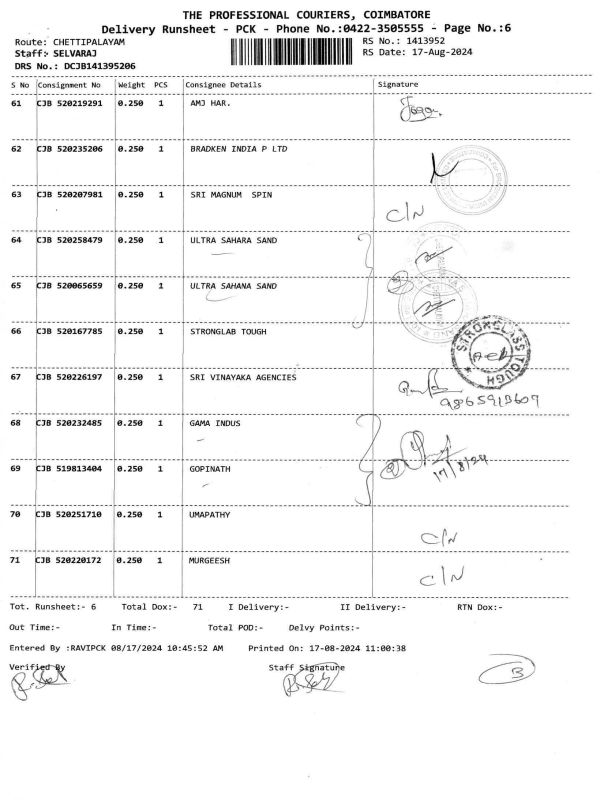 THE PROFESSIONAL COURIERS, COIMBATORE
Delivery Runsheet - PCK - Phone No.:0422-3505555 - Page No.:6
Route: CHETTIPALAYAM RS No.: 1413952
Staff: SELVARAJ RS Date: 17-Aug-2024
DRS No.: DCJB141395206
S No Consignment No Weight PCS Consignee Details Signature
61 CJB 520219291 0.250 1 AMJ HAR.
62 CJB 520235206 0.250 1 BRADKEN INDIA P LTD
63 CJB 520207981 0.250 1 SRI MAGNUM SPIN C/N
64 CJB 520258479 0.250 1 ULTRA SAHARA SAND
65 CJB 520065659 0.250 1 ULTRA SAHANA SAND
66 CJB 520167785 0.250 1 STRONGLAB TOUGH
STRONGLASS TOUGH
67 CJB 520226197 0.250 1 SRI VINAYAKA AGENCIES
9865913607
68 CJB 520232485 0.250 1 GAMA INDUS
69 CJB 519813404 0.250 1 GOPINATH
17/8/24
70 CJB 520251710 0.250 1 UMAPATHY C/N
71 CJB 520220172 0.250 1 MURGEESH C/N
Tot. Runsheet:- 6 Total Dox:- 71 I Delivery:- II Delivery:- RTN Dox:-
Out Time:- In Time:- Total POD:- Delvy Points:-
Entered By :RAVIPCK 08/17/2024 10:45:52 AM Printed On: 17-08-2024 11:00:38
Verified By Staff Signature
3